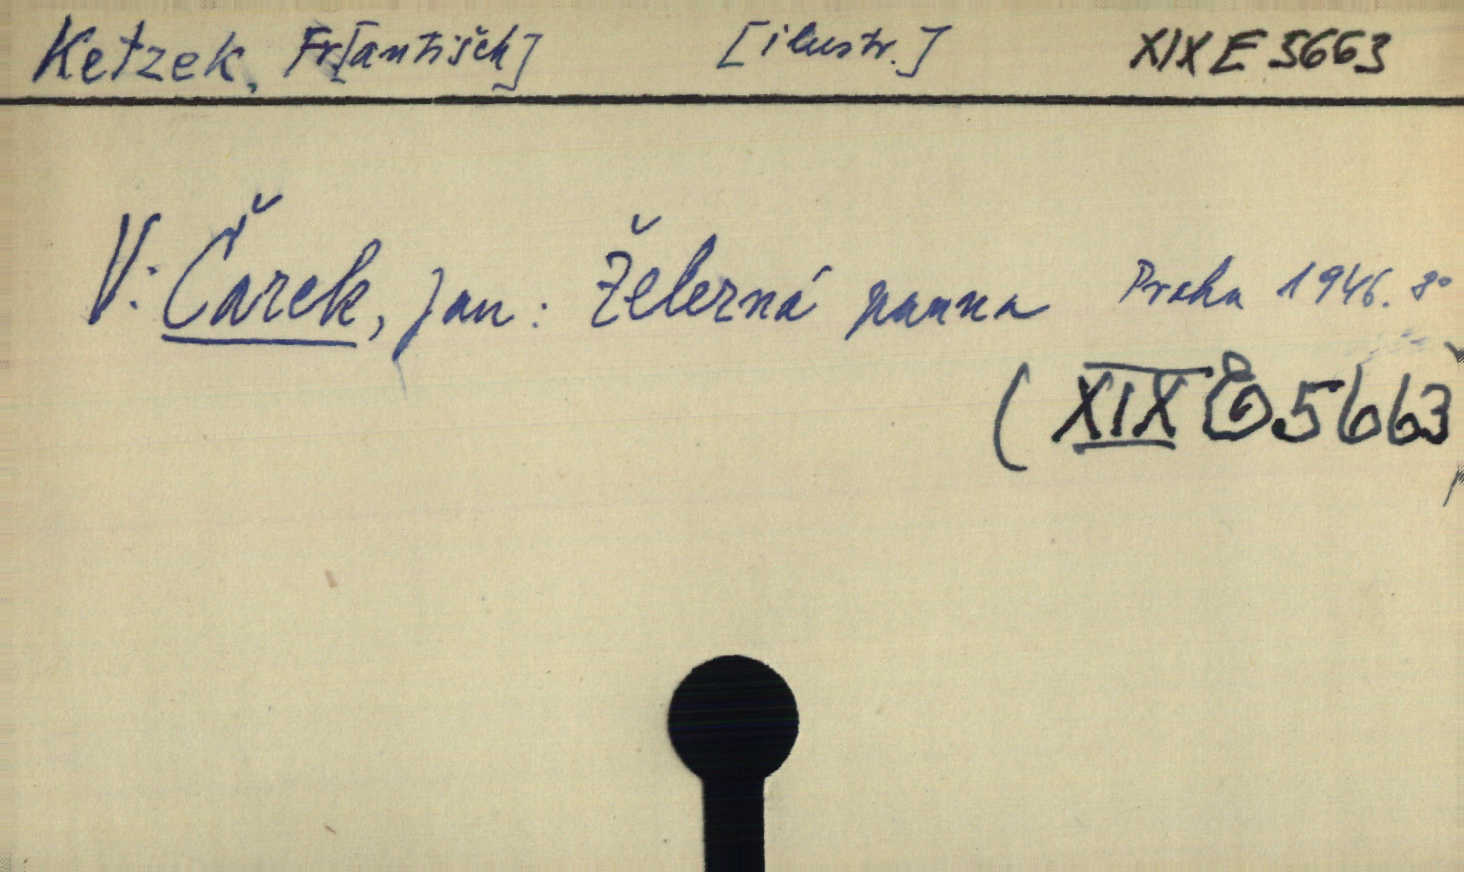 Ketzek, Fr[antišek] [ilustr.] XIX E 5663
V: Čarek, Jan: Železná panna Praha 1946. 8°
(XIX E 5663)